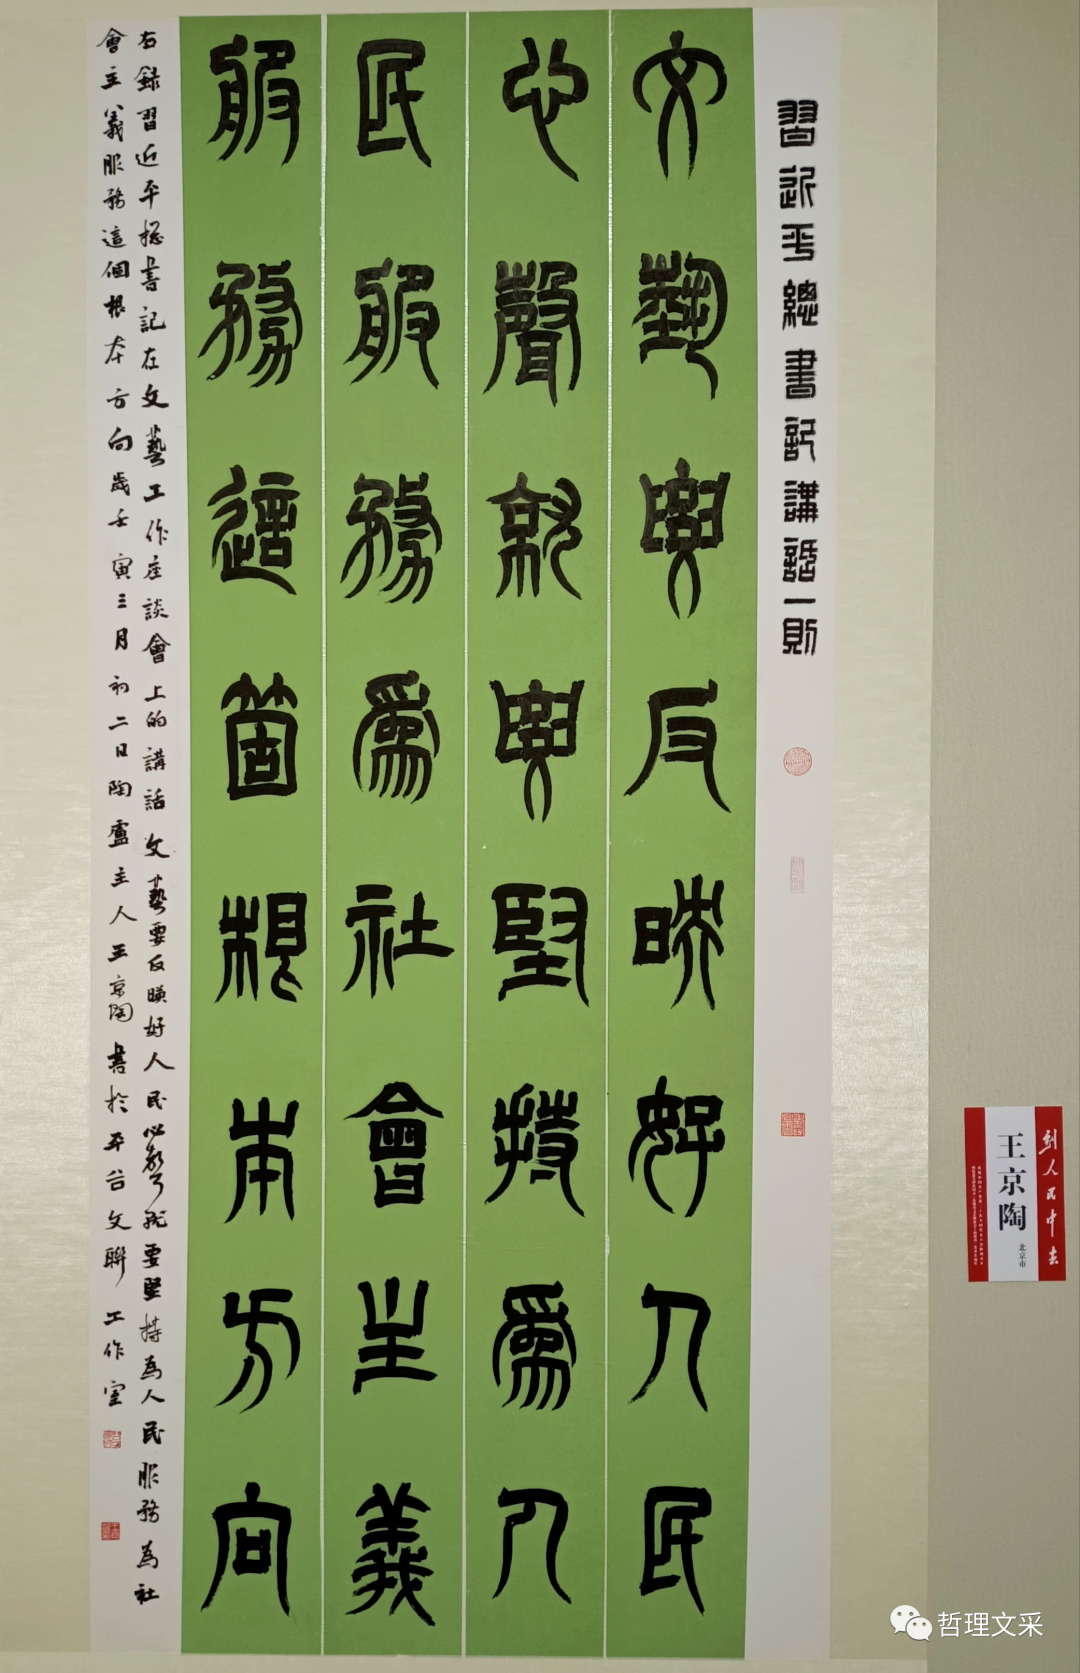 習近平總書記講話一則
文藝要反映好人民
心聲就要堅持為人
民服務為社會主義
服務這箇根本方向
右錄習近平總書記在文藝工作座談會上的講話文藝要反映好人民心聲就要堅持為人民服務為社
會主義服務這個根本方向歲壬寅三月初二日陶盧主人王京陶書於平谷文聯工作室
到人民中去
王京陶
北京市
哲理文采